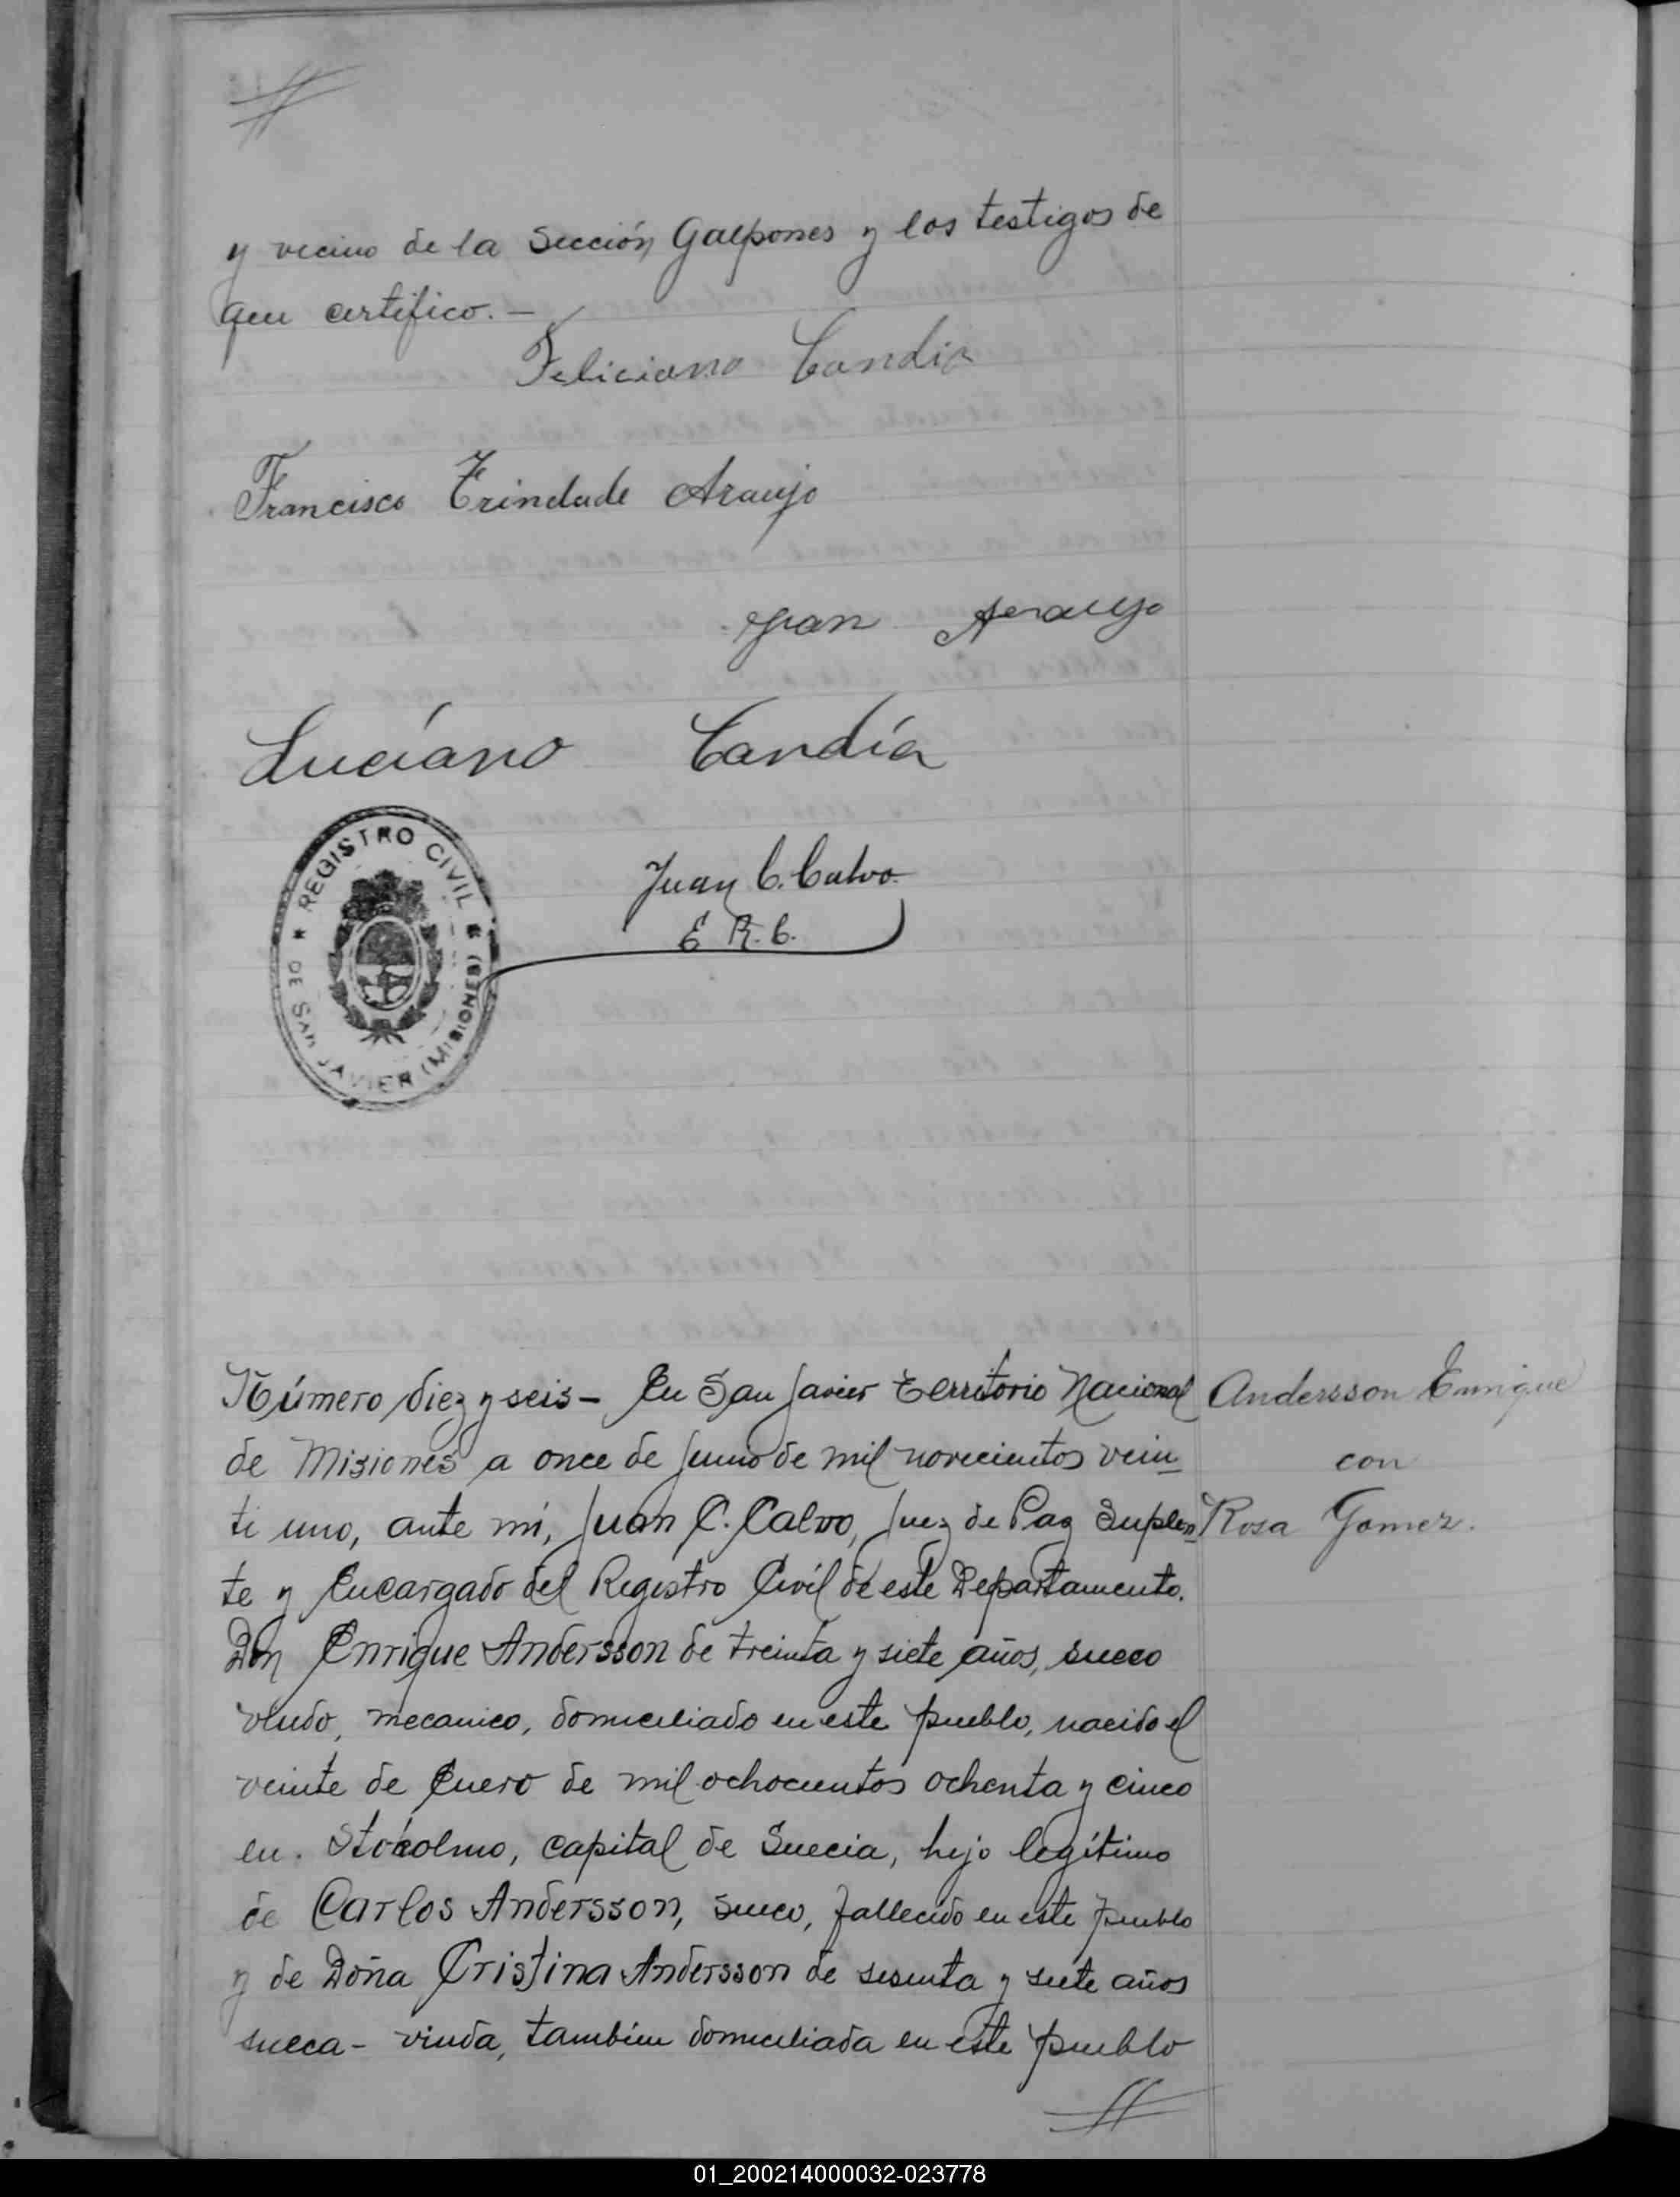 y vecino de la Sección Galpones y los testigos de
que certifico.—
Feliciano Candia
Francisco Trindade Araujo
Juan Araujo
Luciano Candía
REGISTRO CIVIL
DE SAN JAVIER (MISIONES)
Juan C. Calvo
E. R. C.
Número diez y seis - En San Javier Territorio Nacional
Andersson Enrique
de Misiones a once de Junio de mil novecientos vein_
con
ti uno, ante mi, Juan C. Calvo, Juez de Paz Suplen_
Rosa Gomez.
te y Encargado del Registro Civil de este Departamento.
Don Enrique Andersson de treinta y siete años, sueco
viudo, mecanico, domiciliado en este pueblo, nacido el
veinte de Enero de mil ochocientos ochenta y cinco
en. Stokolmo, capital de Suecia, hijo legítimo
de Carlos Andersson, sueco, fallecido en este pueblo
y de Doña Cristina Andersson de sesenta y siete años
sueca - viuda, tambien domiciliada en este pueblo
01_200214000032-023778